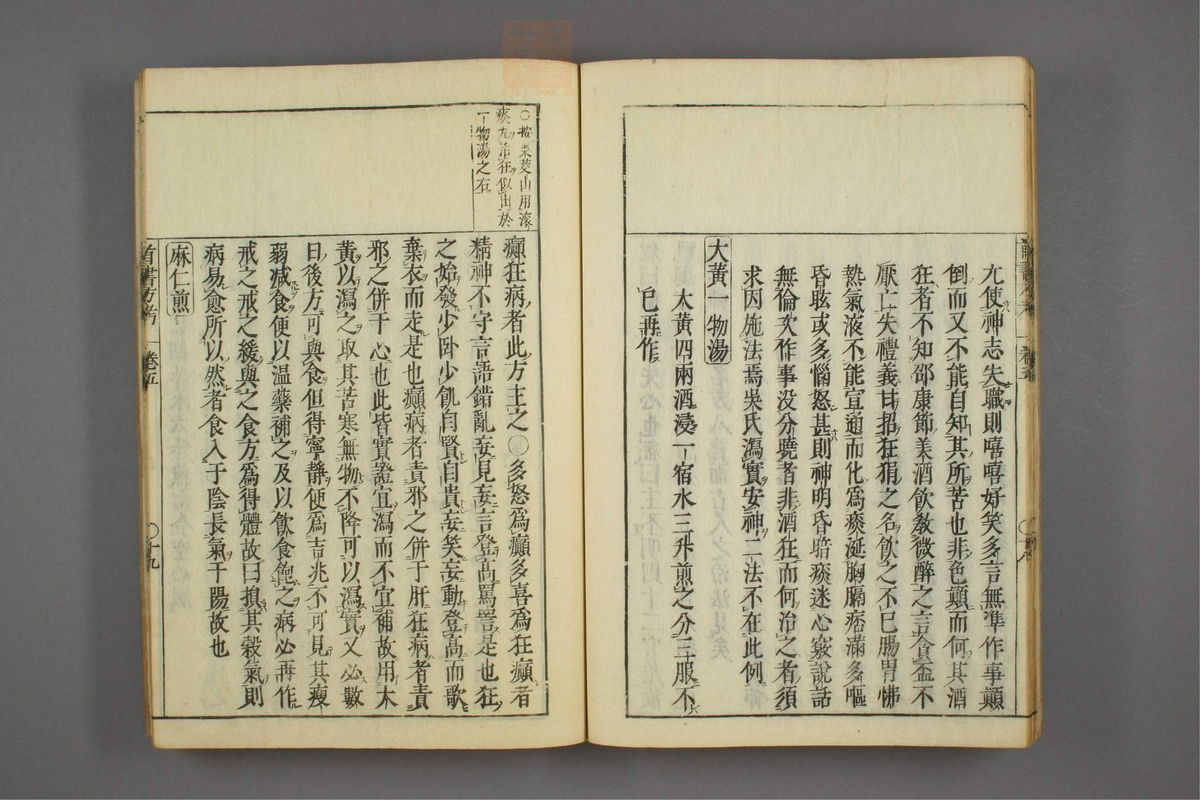 尤使神志失職則嘻嘻好笑多言無準作事顛
倒而又不能自知其所苦也非色顛而何其酒
狂者不知邵康節美酒飲教微醉之言貪盃不
厭亡失禮義甘招狂狷之名飲之不已腸胃怫
熱氣液不能宣通而化為痰涎胸膈痞滿多嘔
昏眩或多惱怒甚則神明昏暗痰迷心竅說話
無倫次作事没分曉者非酒狂而何治之者須
求因施法焉吳氏瀉實安神二法不在此例
大黃一物湯
大黃四兩酒浸一宿水三升煎之分三服不
已再作
○按吳茭山用滾
痰丸治狂似出於
一物湯之右
癲狂病者此方主之○多怒為癲多喜為狂癲者
精神不守言語錯亂妄見妄言登高罵詈是也狂
之始發少卧少飢自賢自貴妄笑妄動登高而歌
棄衣而走是也癲病者責邪之併于肝狂病者責
邪之併于心也此皆實證宜瀉而不宜補故用大
黃以瀉之取其苦寒無物不降可以瀉實又必數
日後方可與食但得寧靜便為吉兆不可見其瘦
弱减食便以溫藥補之及以飲食飽之病必再作
戒之戒之緩與之食方為得體故曰損其穀氣則
病易愈所以然者食入于陰長氣于陽故也
麻仁煎
首書方考
卷五
十九